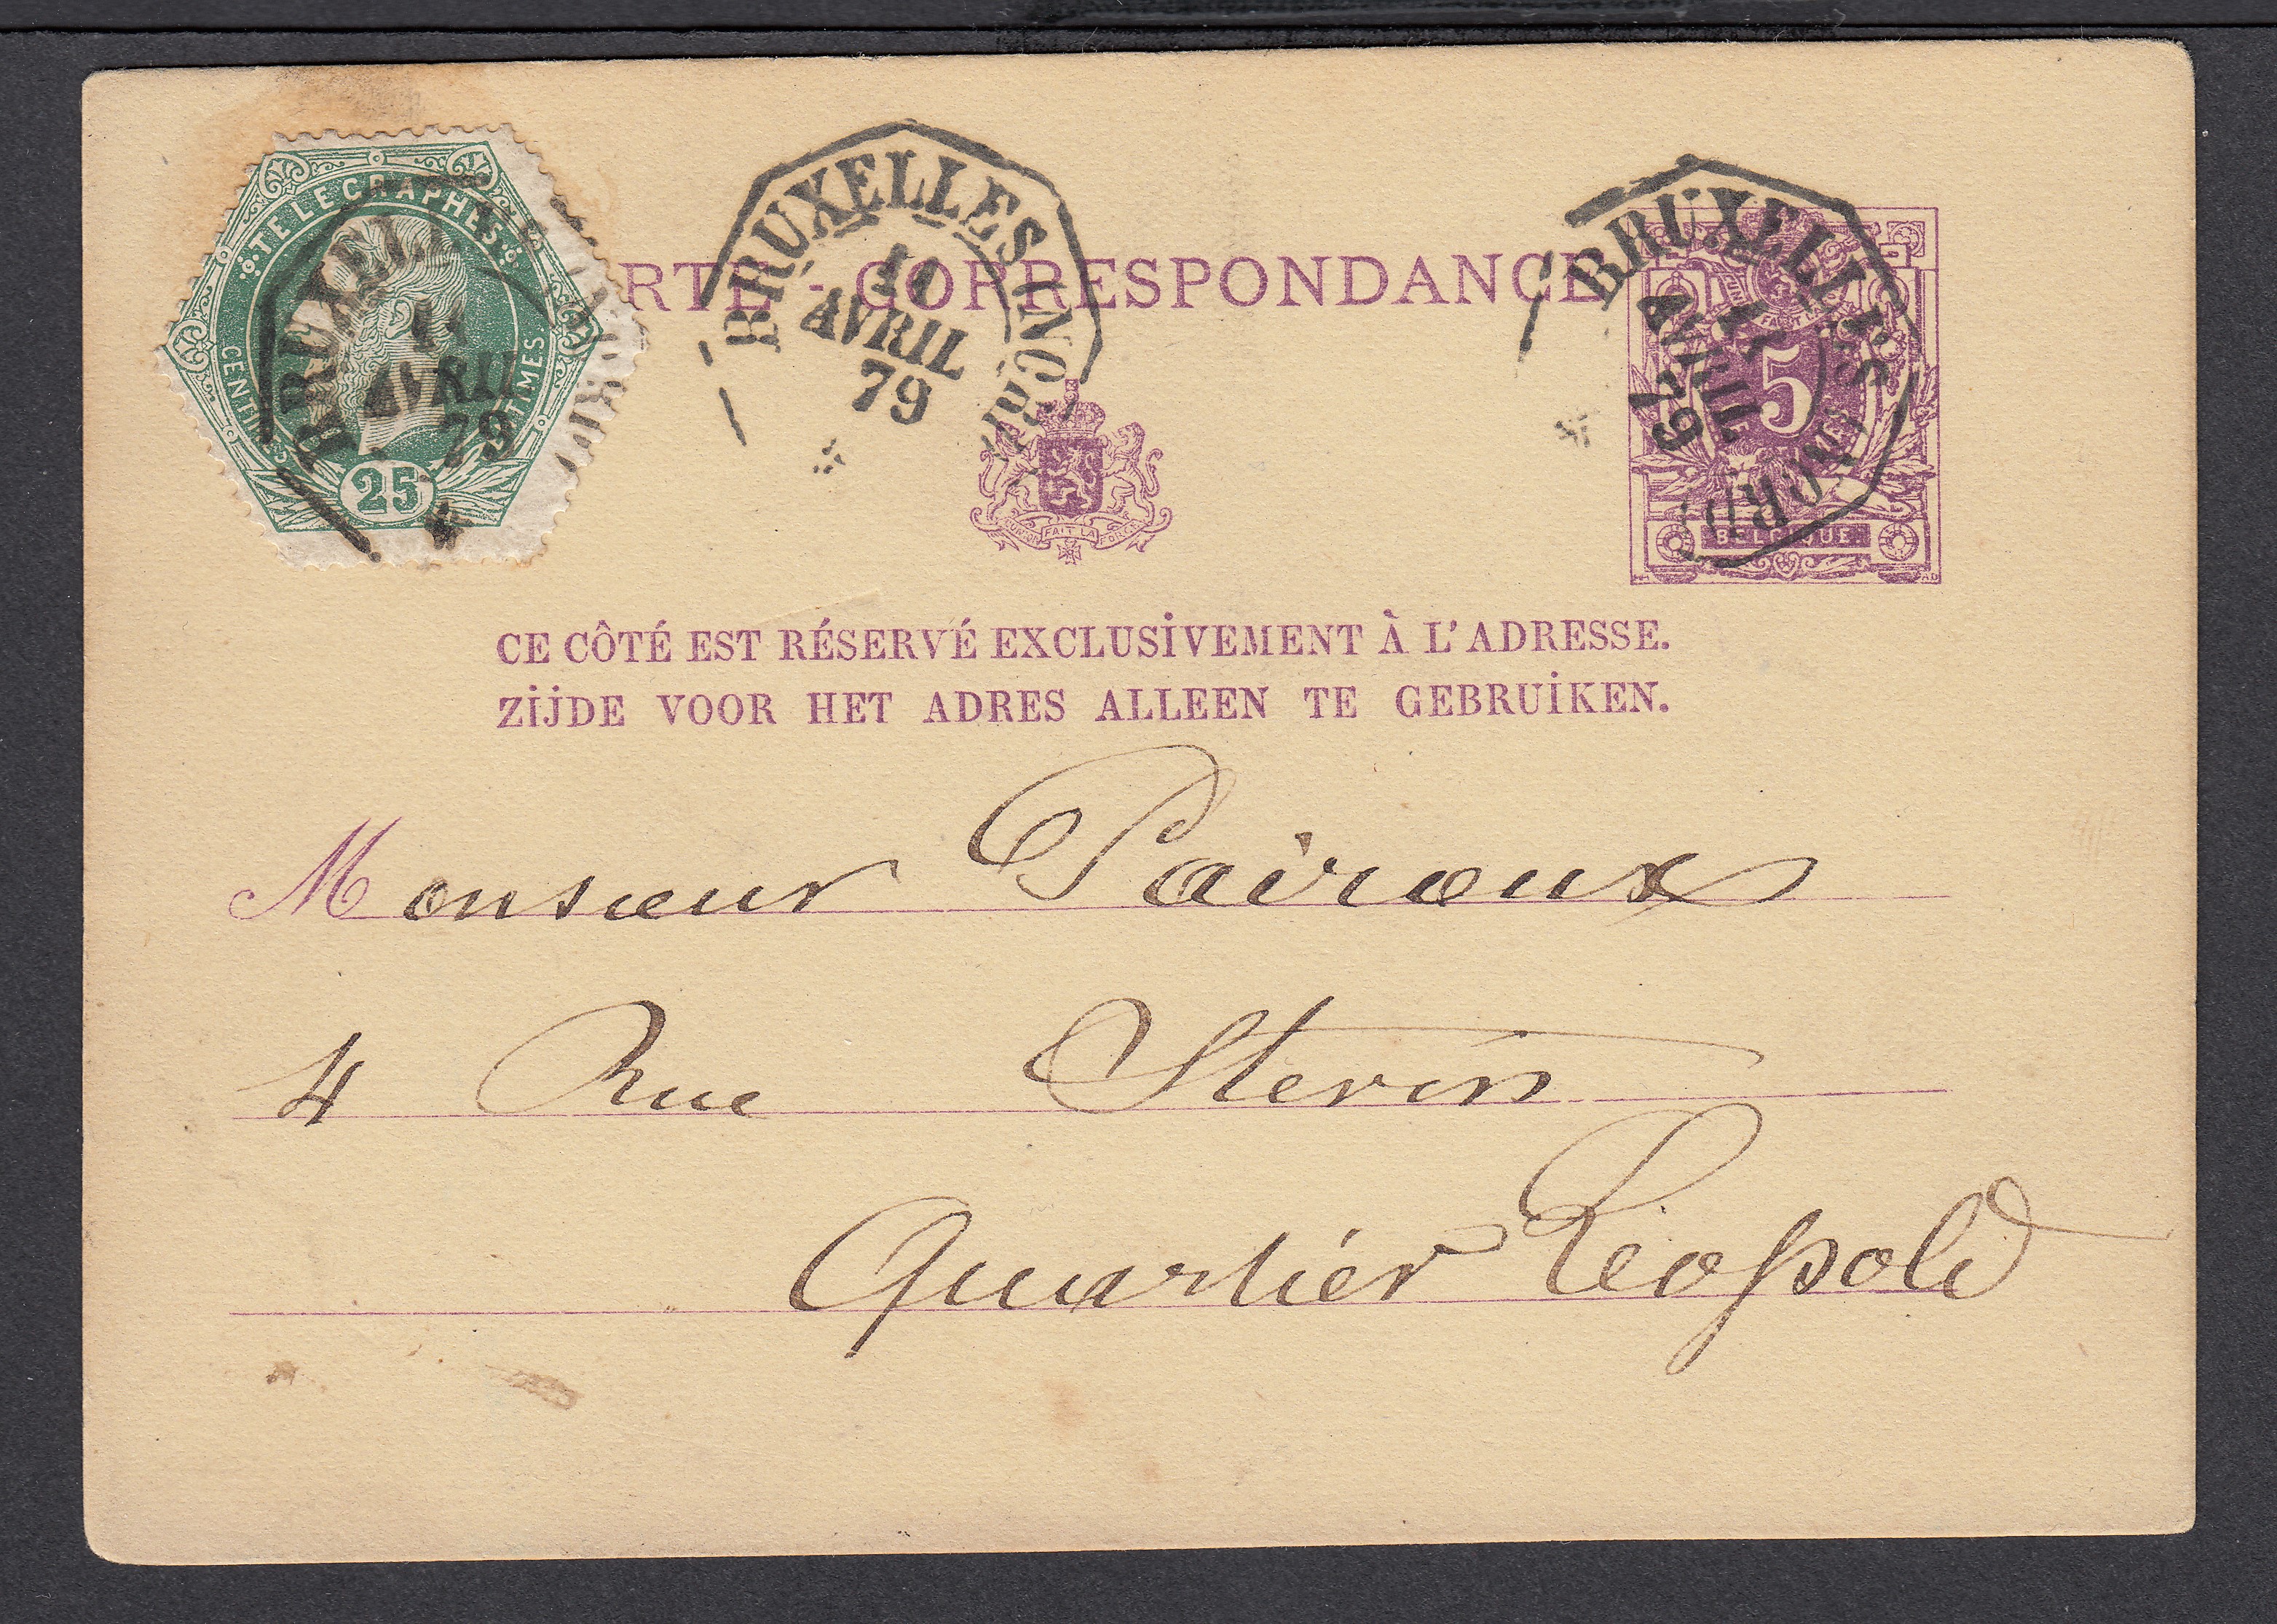 TELEGRAPHES
CENTIMES CENTIMES
25
BRUXELLES
11
AVRIL
79
RTE - CORRESPONDANCE
BRUXELLES (NORD)
11
AVRIL
79
BRUXELLES (NORD)
11
AVRIL
79
5
BELGIQUE
L'UNION FAIT LA FORCE
CE CÔTÉ EST RÉSERVÉ EXCLUSIVEMENT À L'ADRESSE.
ZIJDE VOOR HET ADRES ALLEEN TE GEBRUIKEN.
Monsieur Pairoux
4 Rue Stevin
Quartier Léopold